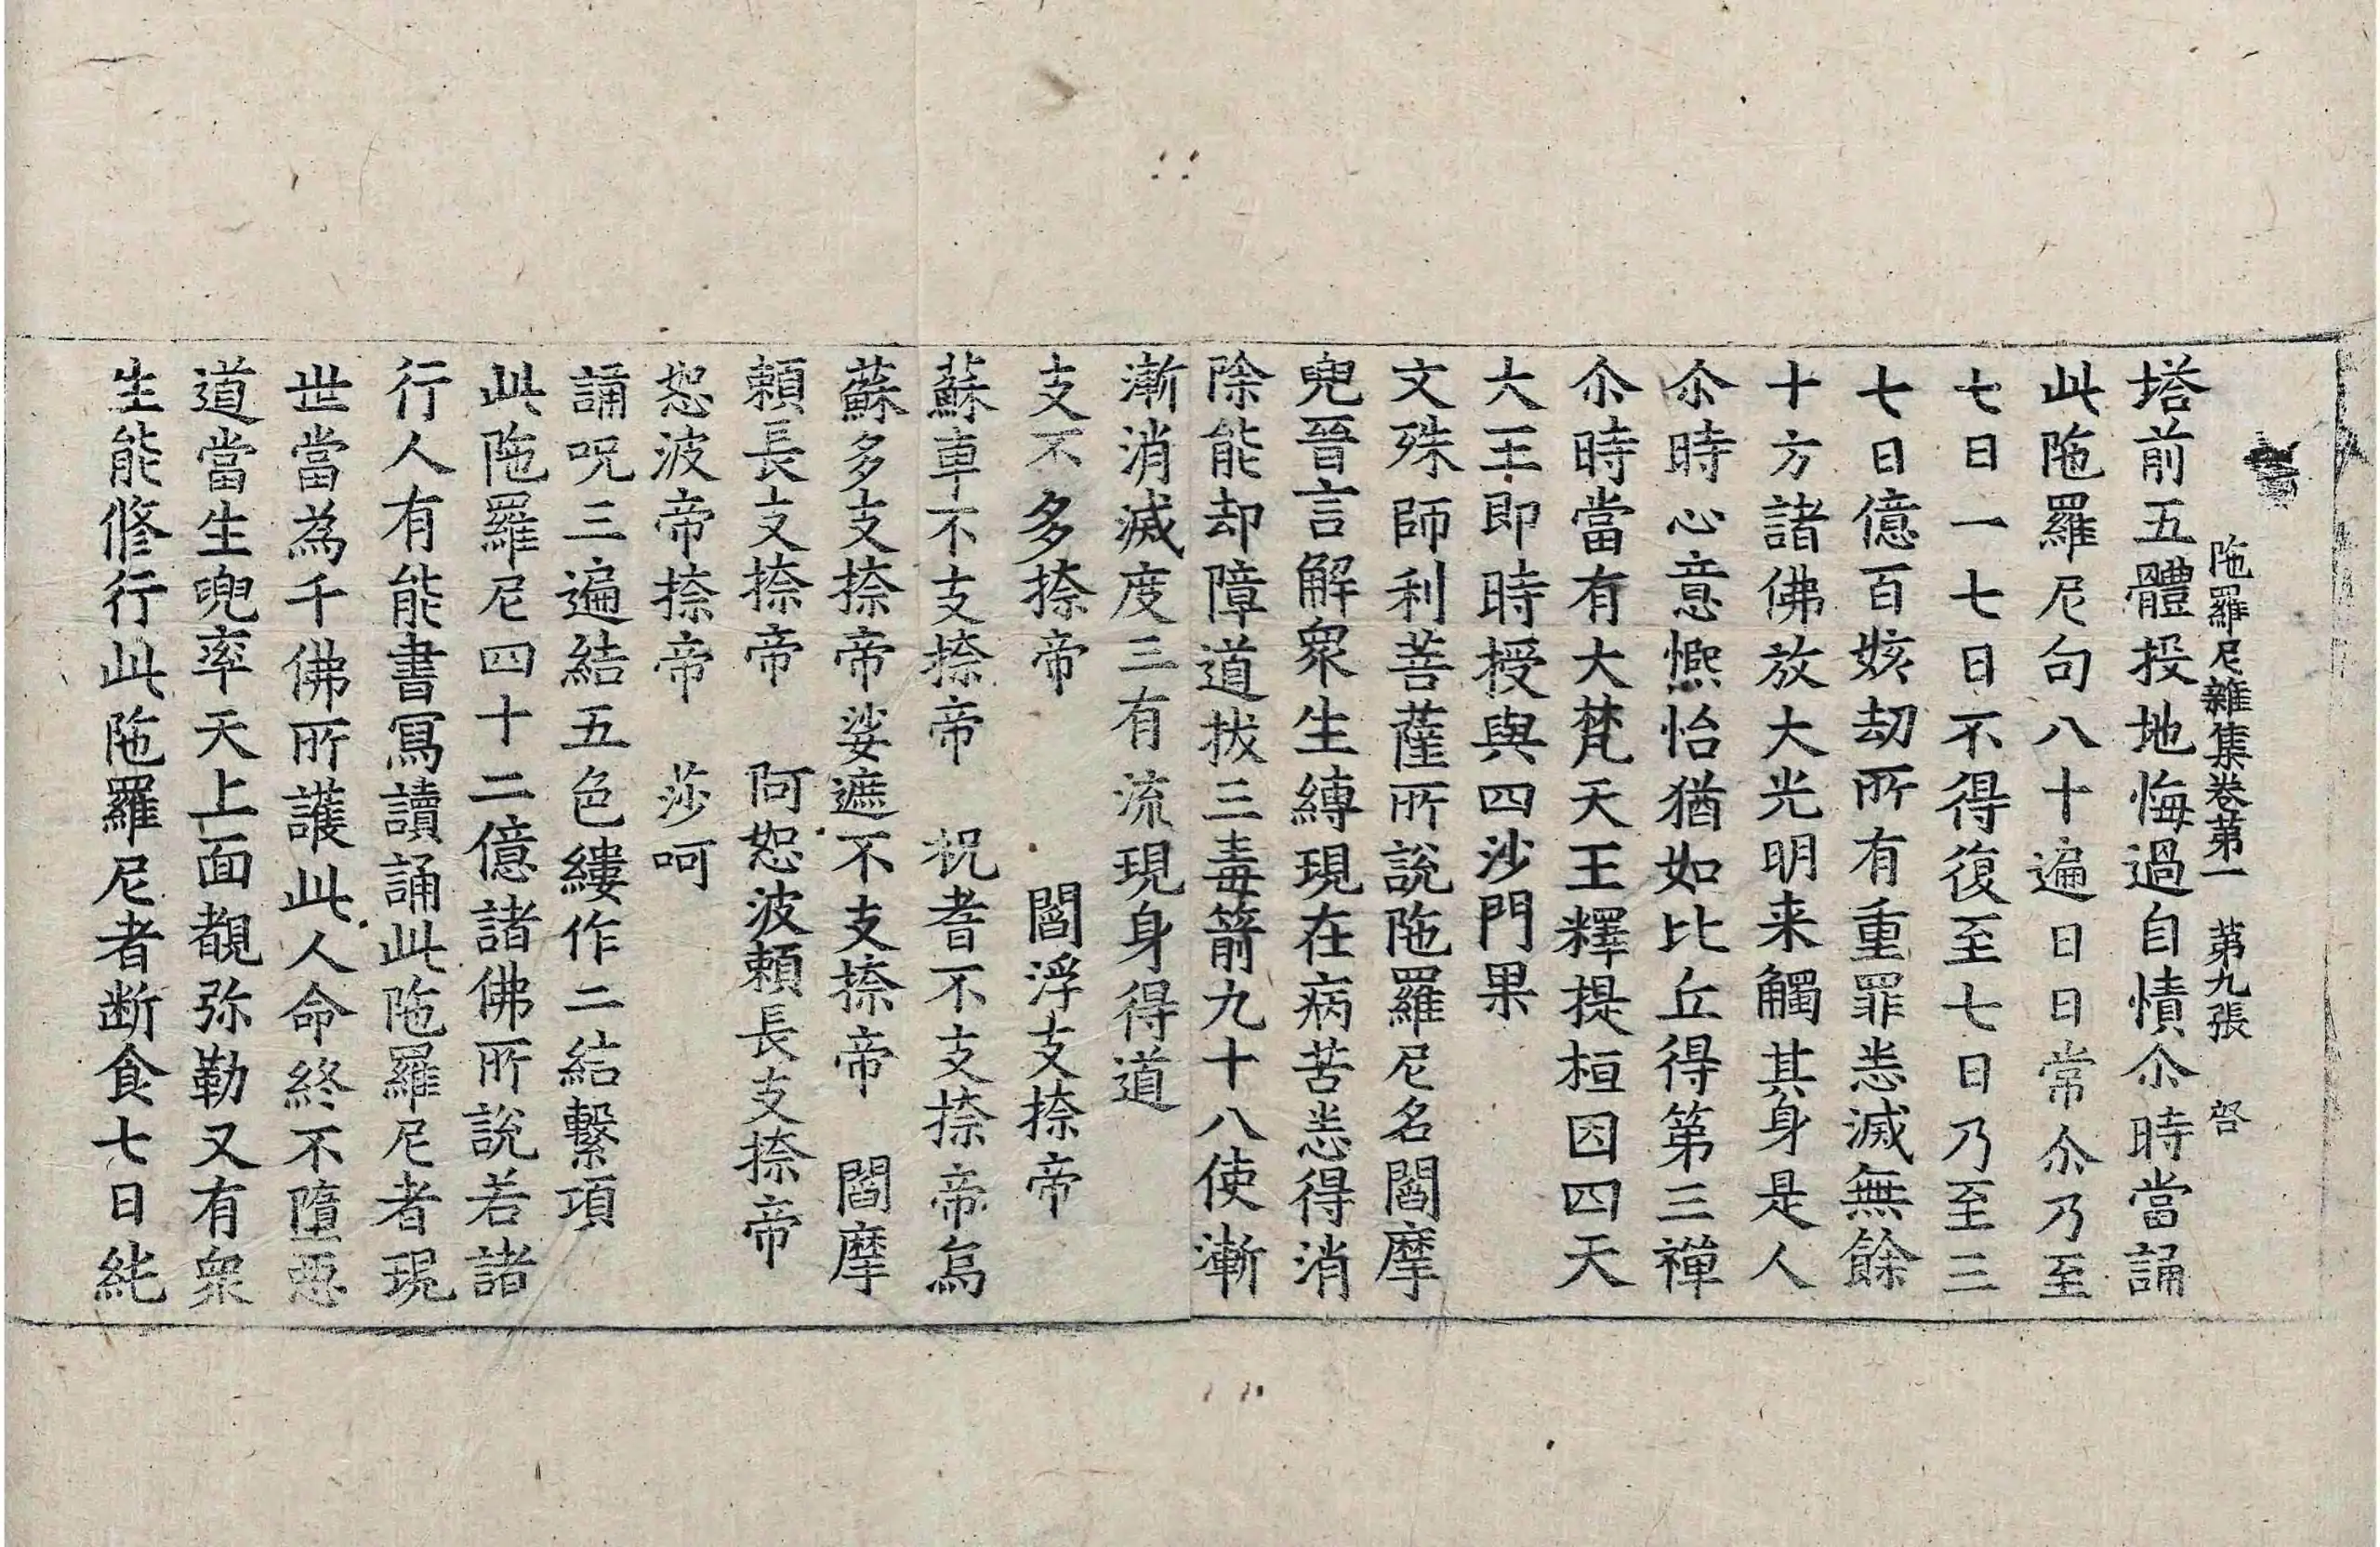 陁羅尼雜集卷第一　第九張　啓
塔前五體投地悔過自憒尒時當誦
此陁羅尼句八十遍日日常尒乃至
七日一七日不得復至七日乃至三
七日億百姟劫所有重罪悉滅無餘
十方諸佛放大光明来觸其身是人
尒時心意凞怡猶如比丘得第三禪
尒時當有大梵天王釋提桓因四天
大王即時授與四沙門果
文殊師利菩薩所說陁羅尼名閻摩
兜晉言解衆生縛現在病苦悉得消
除能却障道拔三毒箭九十八使漸
漸消滅度三有流現身得道
支不多捺帝　閻浮支捺帝
蘇車不支捺帝　祝耆不支捺帝烏
蘇多支捺帝娑遮不支捺帝　閻摩
頼長支捺帝　阿恕波頼長支捺帝
恕波帝捺帝　莎呵
誦呪三遍結五色縷作二結繫項
此陁羅尼四十二億諸佛所說若諸
行人有能書寫讀誦此陁羅尼者現
世當為千佛所護此人命終不墮惡
道當生兜率天上面覩弥勒又有衆
生能修行此陁羅尼者断食七日純